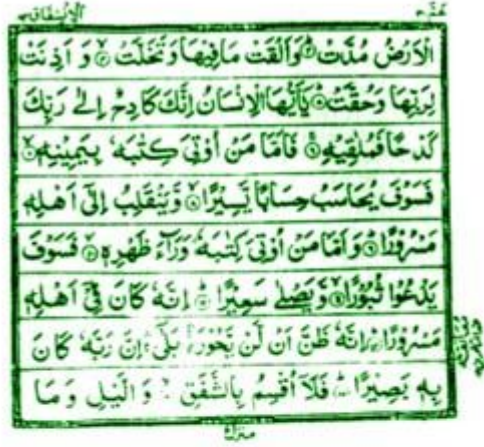 الانشقاق ٨٤
عمّ ٣٠
الْاَرْضُ مُدَّتْ ۙ وَاَلْقَتْ مَا فِيْهَا وَتَخَلَّتْ ۙ وَ اَذِنَتْ
لِرَبِّهَا وَحُقَّتْ ؕ يٰۤاَيُّهَا الْاِنْسَانُ اِنَّكَ كَادِحٌ اِلٰى رَبِّكَ
كَدْحًا فَمُلٰقِيْهِ ۚ فَاَمَّا مَنْ اُوْتِيَ كِتٰبَهٗ بِيَمِيْنِهٖ ۙ
فَسَوْفَ يُحَاسَبُ حِسَابًا يَّسِيْرًا ۙ وَّيَنْقَلِبُ اِلٰۤى اَهْلِهٖ
مَسْرُوْرًا ؕ وَاَمَّا مَنْ اُوْتِيَ كِتٰبَهٗ وَرَآءَ ظَهْرِهٖ ۙ فَسَوْفَ
يَدْعُوْا ثُبُوْرًا ۙ وَّيَصْلٰى سَعِيْرًا ؕ اِنَّهٗ كَانَ فِيْۤ اَهْلِهٖ
مَسْرُوْرًا ؕ اِنَّهٗ ظَنَّ اَنْ لَّنْ يَّحُوْرَ ۚۛ بَلٰٓى ۚۛ اِنَّ رَبَّهٗ كَانَ
بِهٖ بَصِيْرًا ؕ فَلَاۤ اُقْسِمُ بِالشَّفَقِ ۙ وَ الَّيْلِ وَ مَا
منزل